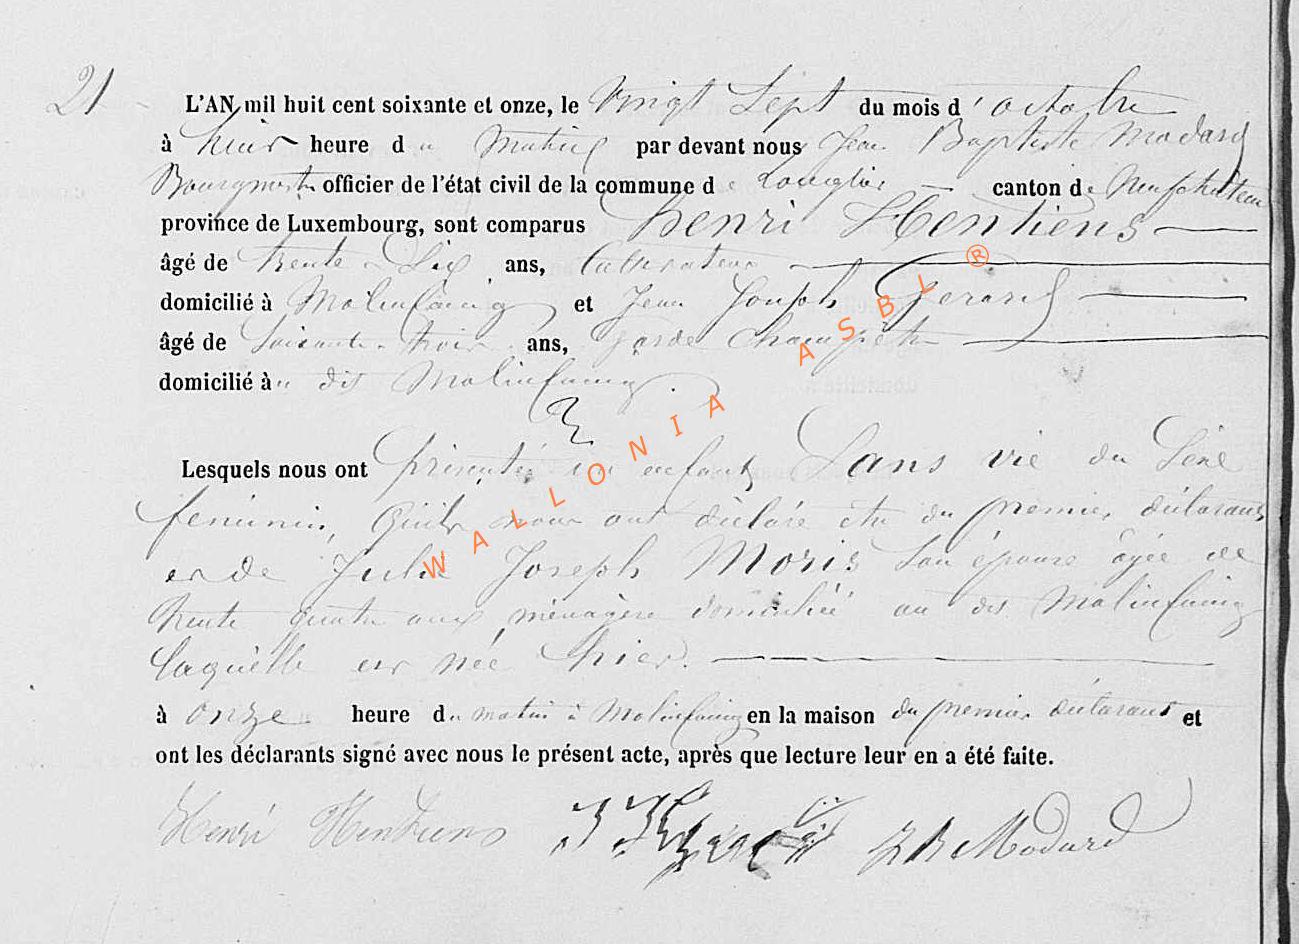 21
L'AN mil huit cent soixante et onze, le Vingt Sept du mois d'octobre
à huit heure du Matin par devant nous Jean Baptiste Modard
Bourgmestre officier de l'état civil de la commune de Longlier canton de Neufchateau
province de Luxembourg, sont comparus henri Hentiens
âgé de trente - Six ans, Cultivateur
domicilié à Molinfaing et Jean Joseph Gerard
âgé de Soixante - trois ans, garde Champêtre
domicilié à u dit Molinfaing.
Lesquels nous ont présenté un enfant Sans vie du Sexe
feminin, Qu'ils nous ont déclaré etre du premier déclarant
et de Julie Joseph Moris Son épouse âgée de
trente quatre ans, ménagère domiciliée au dit Molinfaing
laquelle est née hier.
à onze heure du matin à Molinfaing en la maison du premier déclarant et
ont les déclarants signé avec nous le présent acte, après que lecture leur en a été faite.
Henri Hentiens J J Gerard J B Modard
WALLONIA ASBL ®